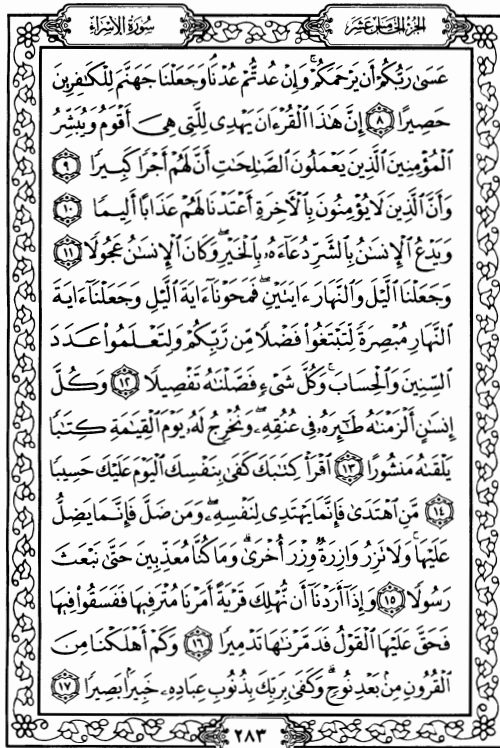 سُورَةُ الإِسْرَاءِ
الجُزْءُ الخَامِسَ عَشَرَ
عَسَىٰ رَبُّكُمْ أَن يَرْحَمَكُمْ ۚ وَإِنْ عُدتُّمْ عُدْنَا ۘ وَجَعَلْنَا جَهَنَّمَ لِلْكَافِرِينَ
حَصِيرًا ٨ إِنَّ هَـٰذَا الْقُرْءَانَ يَهْدِى لِلَّتِى هِىَ أَقْوَمُ وَيُبَشِّرُ
الْمُؤْمِنِينَ الَّذِينَ يَعْمَلُونَ الصَّـٰلِحَـٰتِ أَنَّ لَهُمْ أَجْرًا كَبِيرًا ٩
وَأَنَّ الَّذِينَ لَا يُؤْمِنُونَ بِالْأَخِرَةِ أَعْتَدْنَا لَهُمْ عَذَابًا أَلِيمًا ١٠
وَيَدْعُ الْإِنسَـٰنُ بِالشَّرِّ دُعَآءَهُۥ بِالْخَيْرِ ۖ وَكَانَ الْإِنسَـٰنُ عَجُولًا ١١
وَجَعَلْنَا الَّيْلَ وَالنَّهَارَ ءَايَتَيْنِ ۖ فَمَحَوْنَآ ءَايَةَ الَّيْلِ وَجَعَلْنَآ ءَايَةَ
النَّهَارِ مُبْصِرَةً لِّتَبْتَغُوا۟ فَضْلًا مِّن رَّبِّكُمْ وَلِتَعْلَمُوا۟ عَدَدَ
السِّنِينَ وَالْحِسَابَ ۚ وَكُلَّ شَىْءٍ فَصَّلْنَـٰهُ تَفْصِيلًا ١٢ وَكُلَّ
إِنسَـٰنٍ أَلْزَمْنَـٰهُ طَـٰٓئِرَهُۥ فِى عُنُقِهِۦ ۖ وَنُخْرِجُ لَهُۥ يَوْمَ الْقِيَـٰمَةِ كِتَـٰبًا
يَلْقَىٰهُ مَنشُورًا ١٣ اقْرَأْ كِتَـٰبَكَ كَفَىٰ بِنَفْسِكَ الْيَوْمَ عَلَيْكَ حَسِيبًا
١٤ مَّنِ اهْتَدَىٰ فَإِنَّمَا يَهْتَدِى لِنَفْسِهِۦ ۖ وَمَن ضَلَّ فَإِنَّمَا يَضِلُّ
عَلَيْهَا ۚ وَلَا تَزِرُ وَازِرَةٌ وِزْرَ أُخْرَىٰ ۗ وَمَا كُنَّا مُعَذِّبِينَ حَتَّىٰ نَبْعَثَ
رَسُولًا ١٥ وَإِذَآ أَرَدْنَآ أَن نُّهْلِكَ قَرْيَةً أَمَرْنَا مُتْرَفِيهَا فَفَسَقُوا۟ فِيهَا
فَحَقَّ عَلَيْهَا الْقَوْلُ فَدَمَّرْنَـٰهَا تَدْمِيرًا ١٦ وَكَمْ أَهْلَكْنَا مِنَ
الْقُرُونِ مِنۢ بَعْدِ نُوحٍ ۗ وَكَفَىٰ بِرَبِّكَ بِذُنُوبِ عِبَادِهِۦ خَبِيرًۢا بَصِيرًا ١٧
٢٨٣